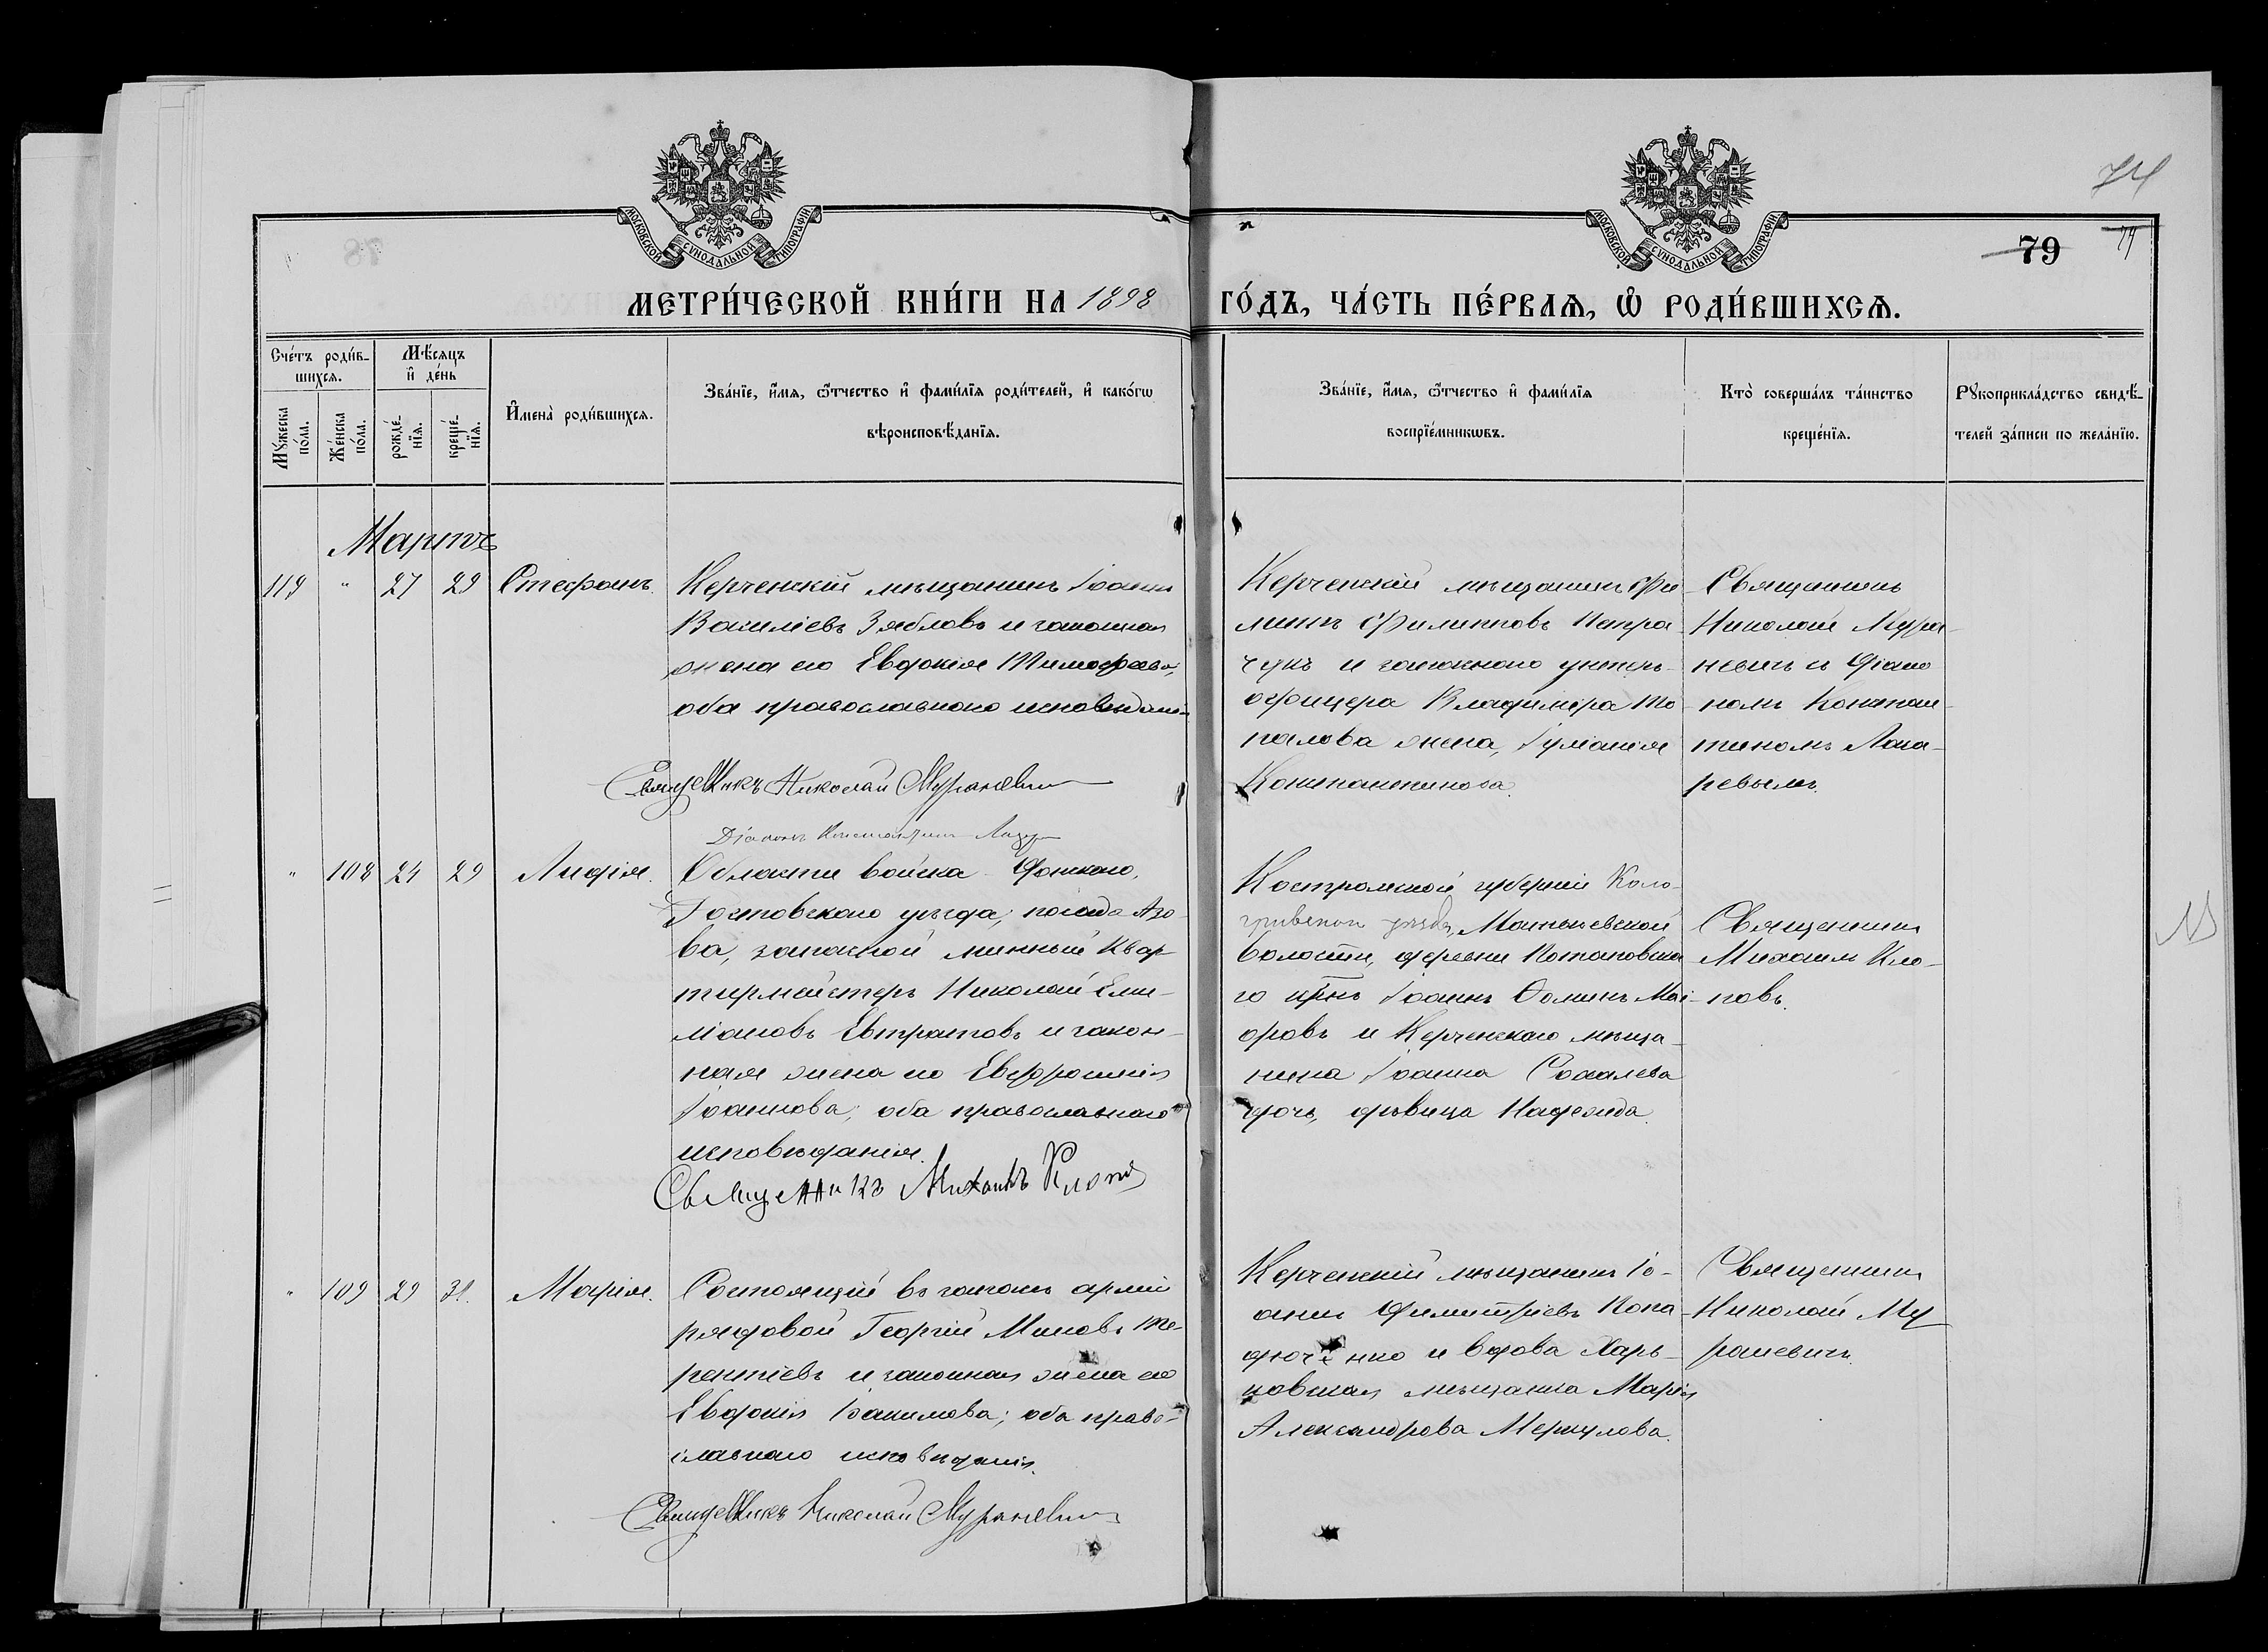 74
МОСКОВСКОЙ СѴНОДАЛЬНОЙ ТИПОГРАФІИ
МОСКОВСКОЙ СѴНОДАЛЬНОЙ ТИПОГРАФІИ
79
74
МЕТРИ́ЧЕСКОЙ КНИ́ГИ НА 1898 ГО́ДЪ, ЧА́СТЬ ПЕ́РВАѦ, Ѡ҆ РОДИ́ВШИХСѦ.
Сче́тъ роди́в-
шихсѧ.
Мꙋ́жеска по́ла.
Же́нска по́ла.
Мѣ́сѧцъ
и҆ де́нь
рожде́-
нїѧ.
креще́-
нїѧ.
И҆мена̀ роди́вшихсѧ.
Зва́нїе, и҆́мѧ, ѻ҆́тчество и҆ фами́лїѧ роди́телей, и҆ како́гѡ
вѣроисповѣ́данїѧ.
Зва́нїе, и҆́мѧ, ѻ҆́тчество и҆ фами́лїѧ
воспрїе́мникѡвъ.
Кто̀ соверша́лъ та́инство
креще́нїѧ.
Рꙋкоприкла́дство свидѣ́-
телей за́писи по жела́нїю.
Мартъ
119 " 27 29 Стефанъ.
Керченскій мѣщанинъ Іоаннъ
Василіевъ Зябловъ и законная
жена его Евдокія Тимофеева,
оба православнаго исповѣдані-
Священникъ Николай Мураневич
Діаконъ Константинъ Лазар
Керченскій мѣщанинъ Фи-
липпъ Филипповъ Петра-
чукъ и запаснаго унтеръ-
офицера Владиміра То-
палова жена, Іуліанія
Константинова.
Священникъ
Николай Мура-
невичъ съ Діако-
номъ Констан-
тиномъ Лаза-
ревымъ.
" 108 24 29 Лидія.
Области войска Донскаго,
Ростовскаго уѣзда, посада Азо-
ва, запасной минный квар-
тирмейстеръ Николай Еми-
ліановъ Евтратовъ и закон-
ная жена его Евфросинія
Іоаннова; оба православнаго
исповѣданія.
Священникъ Михаилъ Клоповъ
Костромской губерніи Коло-
гривскаго уѣзда,
волости, деревни Потаповска-
го крнъ Іоаннъ Ѳоминъ Маі-
оровъ и Керченскаго мѣща-
нина Іоанна Сокалева
дочь, дѣвица Надежда.
Священникъ
Михаилъ Кло-
повъ.
" 109 29 31. Марія.
Состоящій въ запасѣ арміи
рядовой Георгій Миновъ Те-
рентіевъ и законная жена его
Евдокія Іоакимова; оба право-
славнаго исповѣданія.
Священникъ Николай Мураневич
Керченскій мѣщанинъ Іо-
аннъ Димитріевъ Копа-
дюченко и вдова Харь-
ковская мѣщанка Марія
Александрова Меркулова.
Священникъ
Николай Му-
раневичъ.